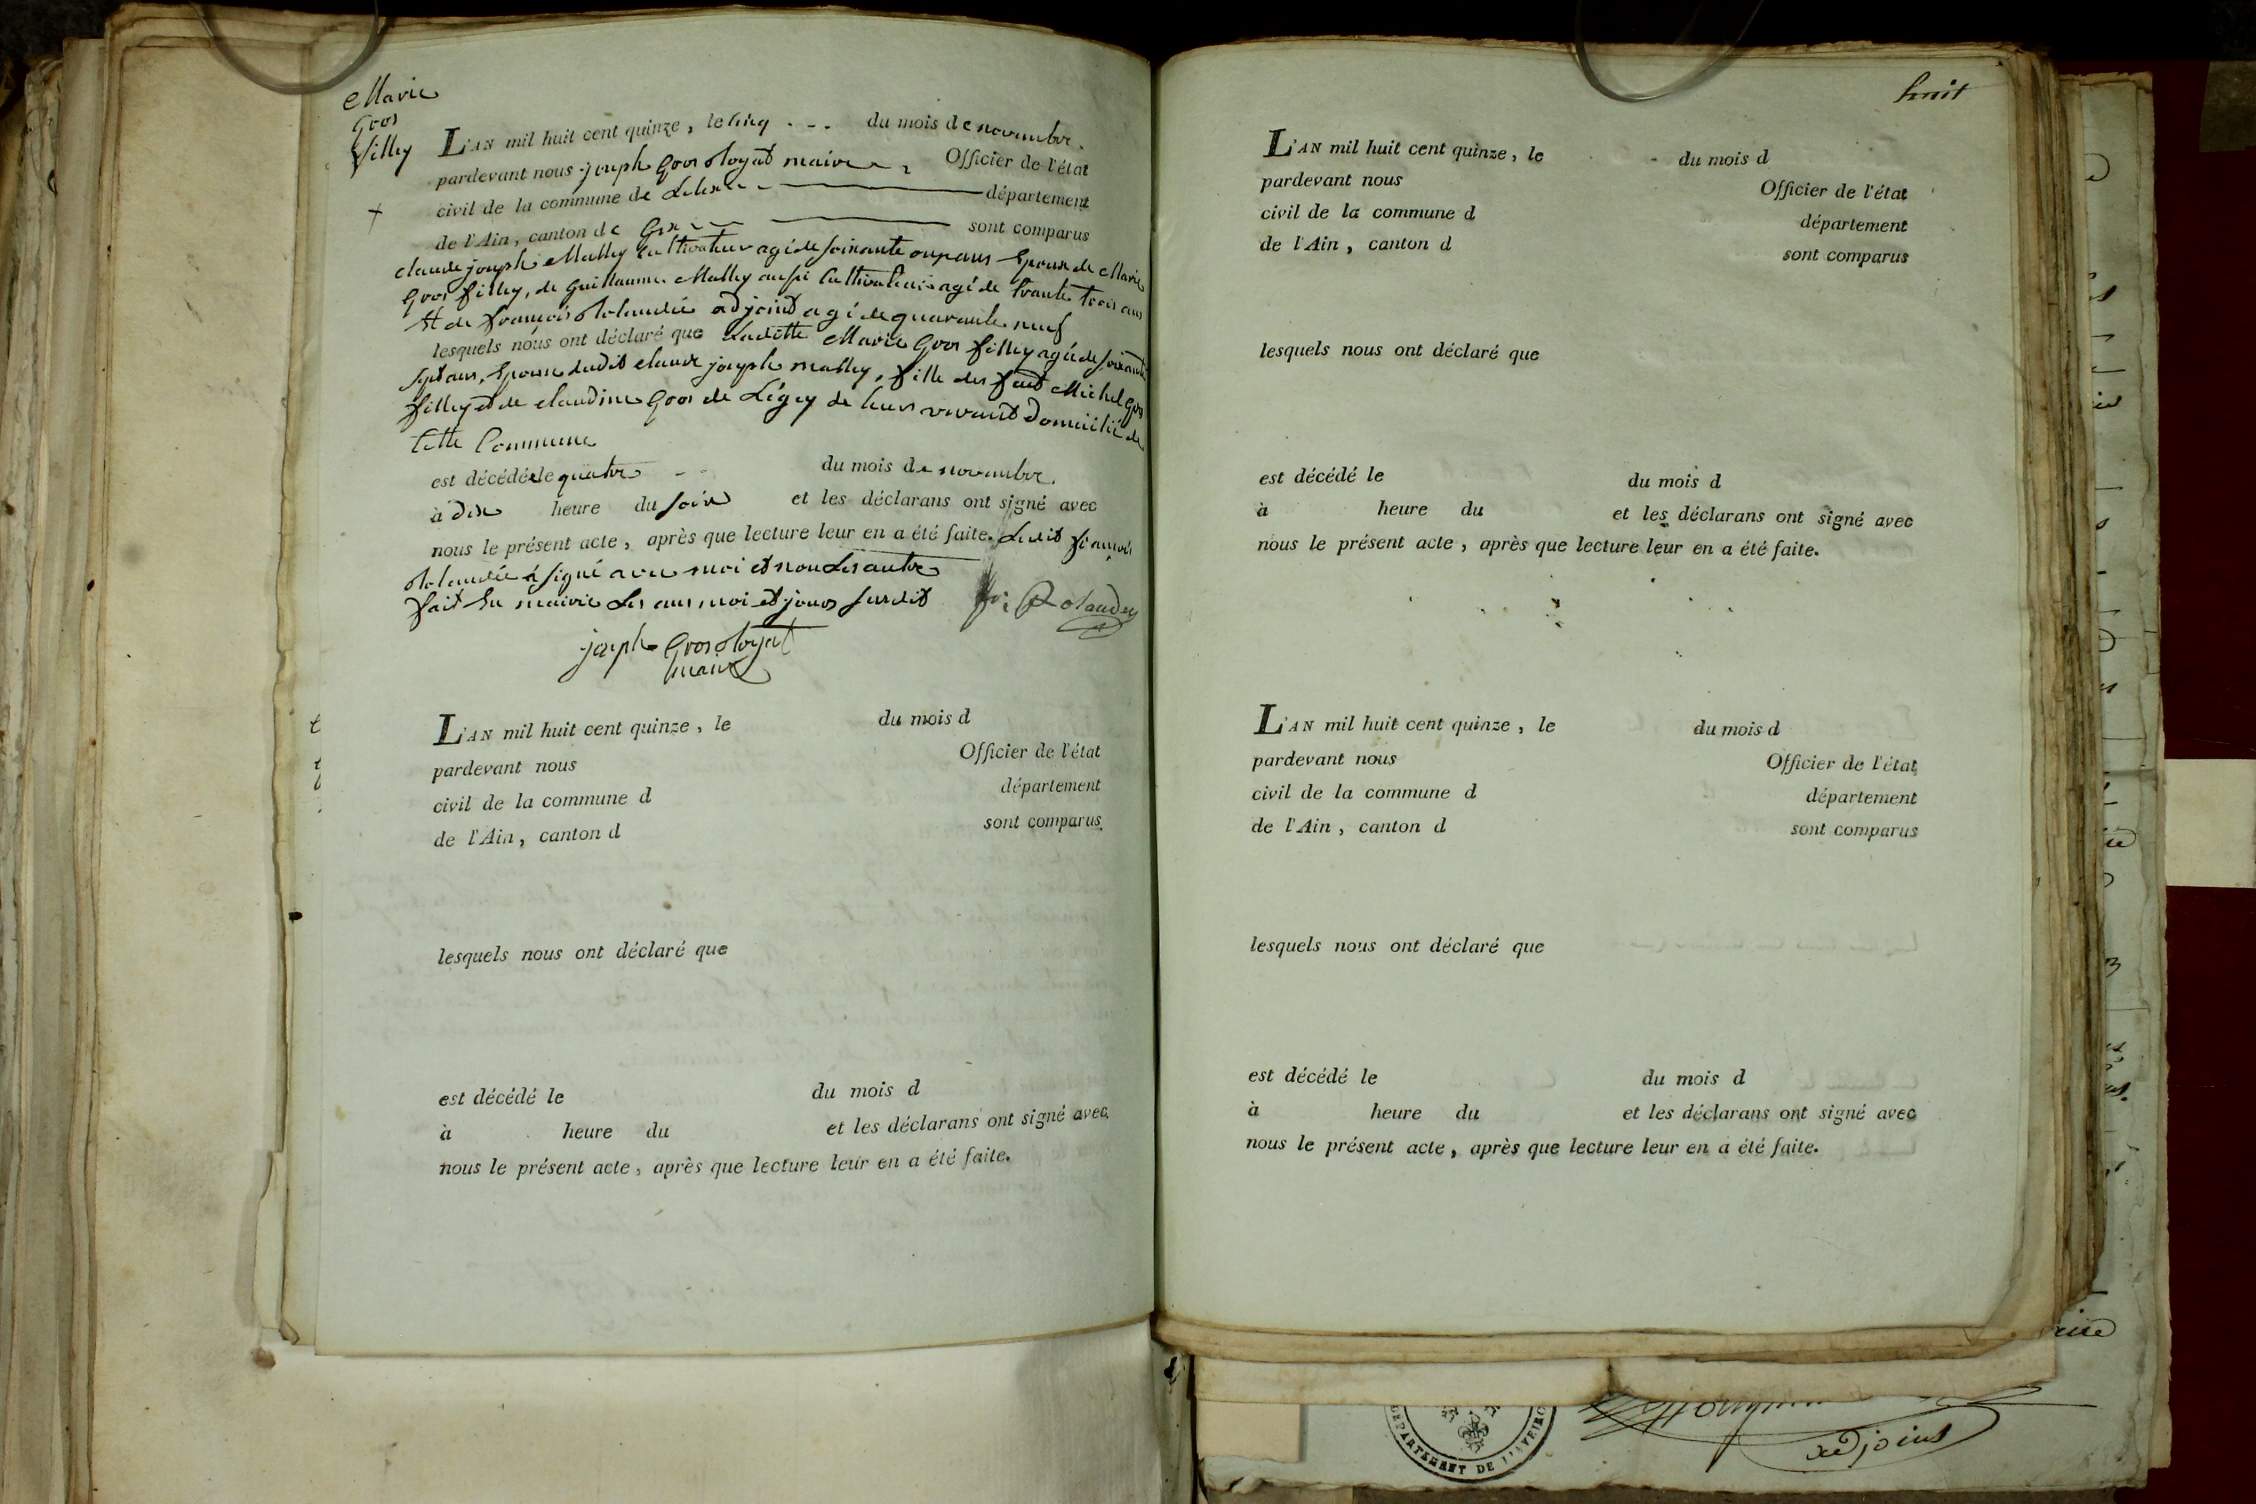 Marie
Gros
filley
L'AN mil huit cent quinze, le cinq du mois de novembre.
pardevant nous joseph Gros Royat maire Officier de l'état
civil de la commune de Lelex département
de l'Ain, canton de Gex sont comparus
claude joseph Malley Cultivateur agé de soixante onze ans Epoux de Marie
Gros filley, de Guillaume Malley aussi Cultivateur agé de trante trois ans
Et de françois Rolandée adjoint agé de quarante neuf
lesquels nous ont déclaré que Laditte Marie Gros filley agée de soixante
sept ans, Epouse dudit claude joseph malley, fille des feus Michel Gros
filley et de claudine Gros de Légey de leurs vivant Domicilié de
Cette Commune
est décédée le quatre du mois de novembre
à dix heure du soir et les déclarans ont signé avec
nous le présent acte, après que lecture leur en a été faite. Ledit françois
Rolandée à signé avec moi et non Les autre
fait En mairie Les ans moi et jours susdit
fr: Rolandey
joseph Gros Royat
maire
L'AN mil huit cent quinze, le du mois d
pardevant nous Officier de l'état
civil de la commune d département
de l'Ain, canton d sont comparus
lesquels nous ont déclaré que
est décédé le du mois d
à heure du et les déclarans ont signé avec
nous le présent acte, après que lecture leur en a été faite.
huit
L'AN mil huit cent quinze, le du mois d
pardevant nous Officier de l'état
civil de la commune d département
de l'Ain, canton d sont comparus
lesquels nous ont déclaré que
est décédé le du mois d
à heure du et les déclarans ont signé avec
nous le présent acte, après que lecture leur en a été faite.
L'AN mil huit cent quinze, le du mois d
pardevant nous Officier de l'état
civil de la commune d département
de l'Ain, canton d sont comparus
lesquels nous ont déclaré que
est décédé le du mois d
à heure du et les déclarans ont signé avec
nous le présent acte, après que lecture leur en a été faite.
adjoint